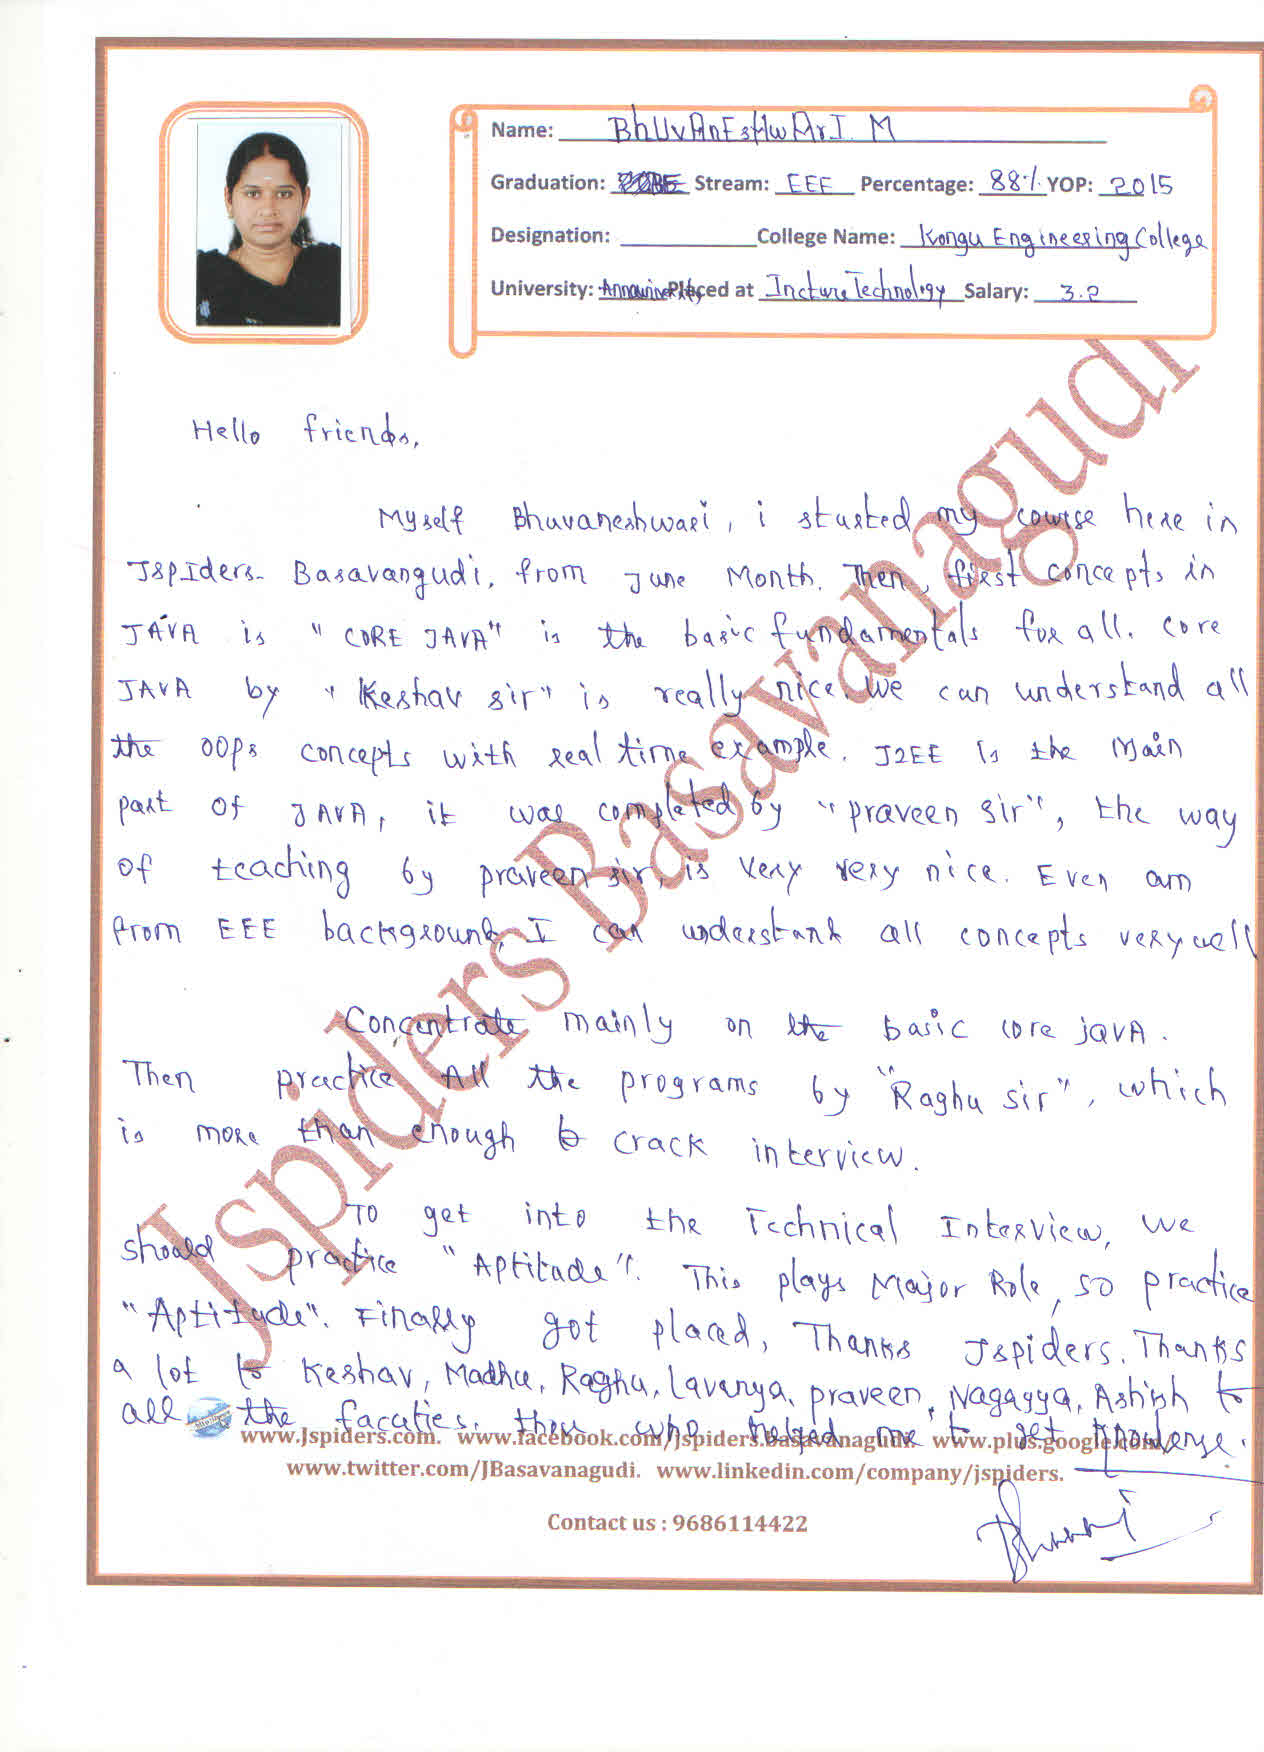 Name: BhUvAnEsHwArI. M
Graduation: BE Stream: EEE Percentage: 88% YOP: 2015
Designation: College Name: Kongu Engineering College
University: Placed at Incture Technology Salary: 3.2
Hello friends,
Myself Bhuvaneshwari, i started my course here in
JspIders- Basavangudi, from June Month. Then, first concepts in
JAVA is "CORE JAVA" is the basic fundamentals for all. core
JAVA by "Keshav sir" is really nice. We can understand all
the OOps concepts with real time example. J2EE is the Main
part of JAVA, it was completed by "praveen sir", the way
of teaching by praveen sir, is very very nice. Even am
from EEE background, I can understand all concepts very well
Concentrate mainly on the basic core javA.
Then practice All the programs by "Raghu sir", which
is more than enough to crack interview.
TO get into the Technical Interview, we
should practice "Aptitude". This plays Major Role, so practice
"Aptitude". Finally got placed, Thanks Jspiders. Thanks
a lot to Keshav, Madhu, Raghu, Lavanya, praveen, Nagayya, Ashish to
all the faculties, who helped me to get
www.Jspiders.com. www.facebook.com/jspiders.basavanagudi. www.plus.google.com.
www.twitter.com/JBasavanagudi. www.linkedin.com/company/jspiders.
Contact us : 9686114422
Jspiders Basavanagudi